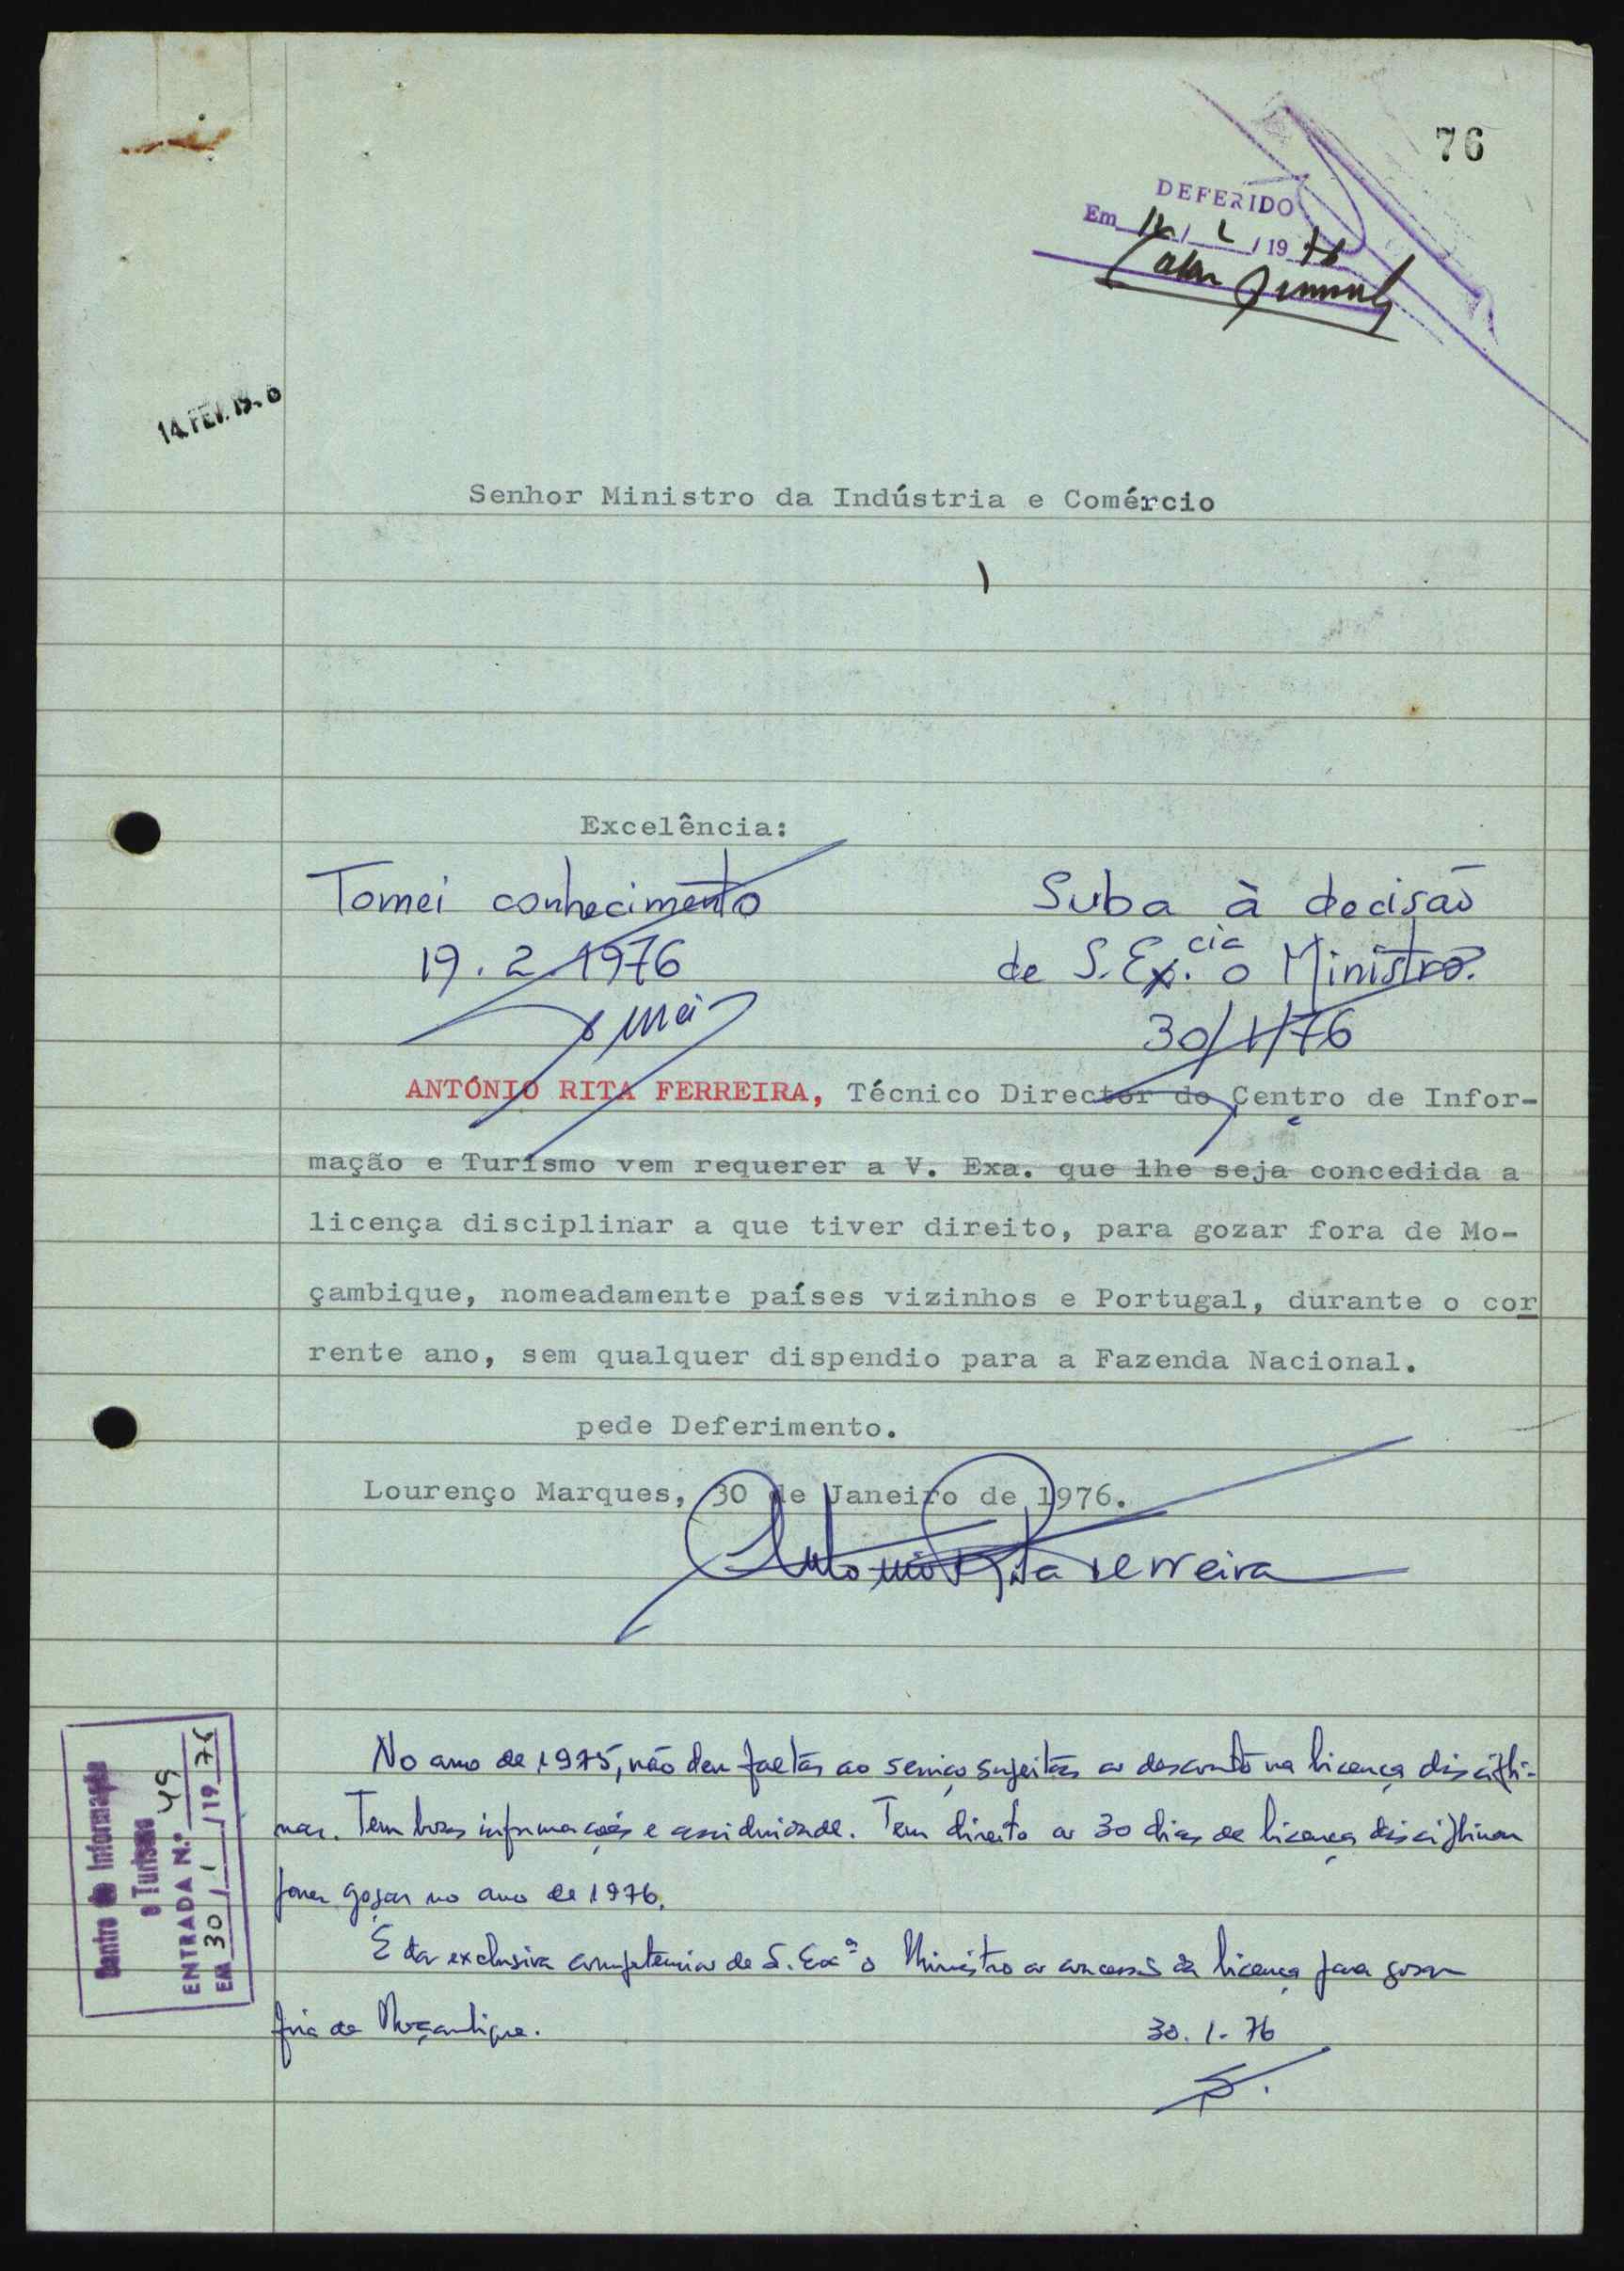 76
DEFERIDO
Em / /1976
14.FEV.19 6
Senhor Ministro da Indústria e Comércio
Excelência:
Tomei conhecimento
19.2.1976
Suba à decisão
de S.Ex.cia o Ministro.
30/1/76
ANTÓNIO RITA FERREIRA, Técnico Director do Centro de Infor-
mação e Turismo vem requerer a V. Exa. que lhe seja concedida a
licença disciplinar a que tiver direito, para gozar fora de Mo-
çambique, nomeadamente países vizinhos e Portugal, durante o cor
rente ano, sem qualquer dispendio para a Fazenda Nacional.
pede Deferimento.
Lourenço Marques, 30 de Janeiro de 1976.
António Rita Ferreira
No ano de 1975, não deu faltas ao serviço sujeitas a desconto na licença discipli-
nar. Tem boas informações e assiduidade. Tem direito a 30 dias de licença disciplinar
para gozar no ano de 1976.
É da exclusiva competência de S. Exª o Ministro a concessão da licença para gozar
fora de Moçambique.
30.1.76
Centro de Informação
e Turismo
ENTRADA N.º 49
EM 30/1/1976